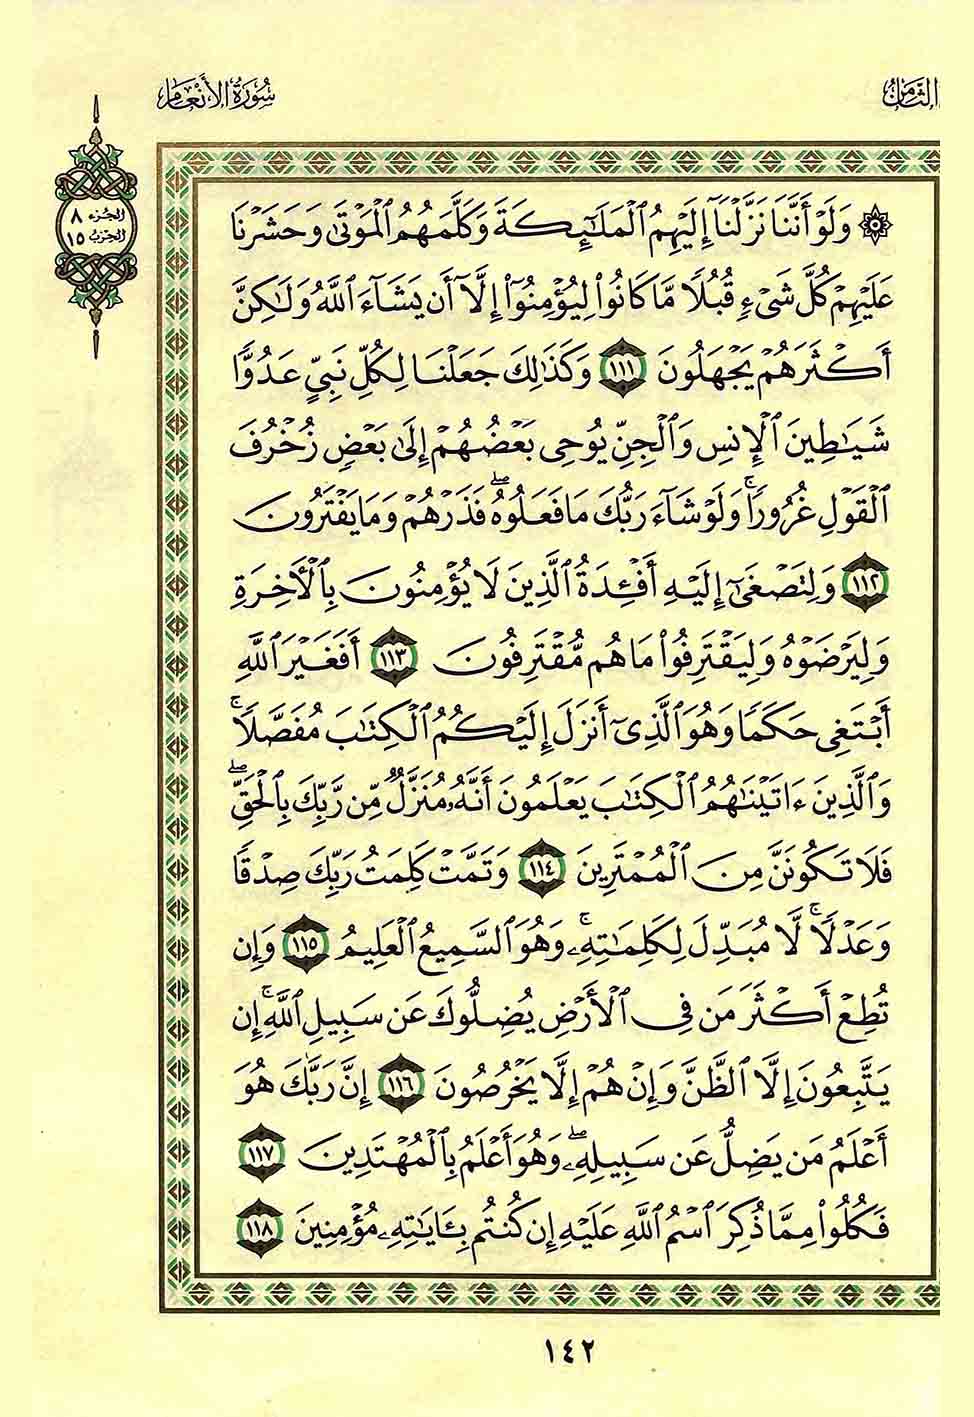 الثَّامِنُ
سُورَةُ الأَنْعَامِ
الجُزء ٨
الحِزبُ ١٥
۞ وَلَوْ أَنَّنَا نَزَّلْنَآ إِلَيْهِمُ ٱلْمَلَـٰٓئِكَةَ وَكَلَّمَهُمُ ٱلْمَوْتَىٰ وَحَشَرْنَا
عَلَيْهِمْ كُلَّ شَىْءٍ قُبُلًا مَّا كَانُوا۟ لِيُؤْمِنُوٓا۟ إِلَّآ أَن يَشَآءَ ٱللَّهُ وَلَـٰكِنَّ
أَكْثَرَهُمْ يَجْهَلُونَ ١١١ وَكَذَٰلِكَ جَعَلْنَا لِكُلِّ نَبِىٍّ عَدُوًّا
شَيَـٰطِينَ ٱلْإِنسِ وَٱلْجِنِّ يُوحِى بَعْضُهُمْ إِلَىٰ بَعْضٍ زُخْرُفَ
ٱلْقَوْلِ غُرُورًا ۚ وَلَوْ شَآءَ رَبُّكَ مَا فَعَلُوهُ ۖ فَذَرْهُمْ وَمَا يَفْتَرُونَ
١١٢ وَلِتَصْغَىٰٓ إِلَيْهِ أَفْـِٔدَةُ ٱلَّذِينَ لَا يُؤْمِنُونَ بِٱلْـَٔاخِرَةِ
وَلِيَرْضَوْهُ وَلِيَقْتَرِفُوا۟ مَا هُم مُّقْتَرِفُونَ ١١٣ أَفَغَيْرَ ٱللَّهِ
أَبْتَغِى حَكَمًا وَهُوَ ٱلَّذِىٓ أَنزَلَ إِلَيْكُمُ ٱلْكِتَـٰبَ مُفَصَّلًا ۚ
وَٱلَّذِينَ ءَاتَيْنَـٰهُمُ ٱلْكِتَـٰبَ يَعْلَمُونَ أَنَّهُۥ مُنَزَّلٌ مِّن رَّبِّكَ بِٱلْحَقِّ ۖ
فَلَا تَكُونَنَّ مِنَ ٱلْمُمْتَرِينَ ١١٤ وَتَمَّتْ كَلِمَتُ رَبِّكَ صِدْقًا
وَعَدْلًا ۚ لَّا مُبَدِّلَ لِكَلِمَـٰتِهِۦ ۚ وَهُوَ ٱلسَّمِيعُ ٱلْعَلِيمُ ١١٥ وَإِن
تُطِعْ أَكْثَرَ مَن فِى ٱلْأَرْضِ يُضِلُّوكَ عَن سَبِيلِ ٱللَّهِ ۚ إِن
يَتَّبِعُونَ إِلَّا ٱلظَّنَّ وَإِنْ هُمْ إِلَّا يَخْرُصُونَ ١١٦ إِنَّ رَبَّكَ هُوَ
أَعْلَمُ مَن يَضِلُّ عَن سَبِيلِهِۦ ۖ وَهُوَ أَعْلَمُ بِٱلْمُهْتَدِينَ ١١٧
فَكُلُوا۟ مِمَّا ذُكِرَ ٱسْمُ ٱللَّهِ عَلَيْهِ إِن كُنتُم بِـَٔايَـٰتِهِۦ مُؤْمِنِينَ ١١٨
١٤٢